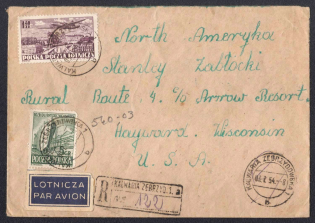 North Ameryka
POLSKA POCZTA LOTNICZA
Stanley Zabłocki
Rural Route 4. c/o Arrow Resort,
540-03
Hayward, Wisconsin
U. S. A.
POCZTA POLSKA
LOTNICZA
PAR AVION
KALWARIA ZEBRZYDOWSKA
KALWARIA ZEBRZYD. 1. a
R
Nr 122